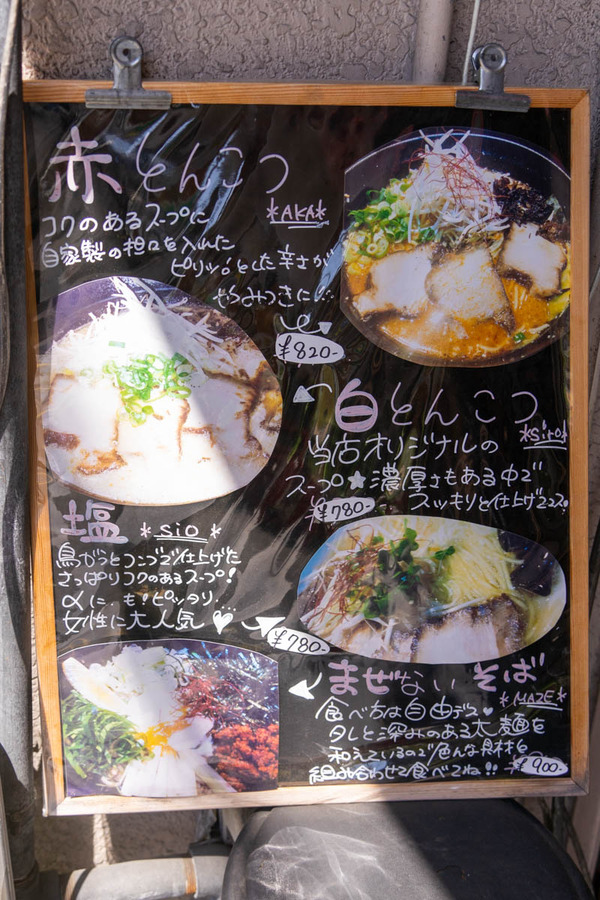 赤とんこつ
*AKA*
コクのあるスープに
自家製の担々を入れた
ピリッ!とした辛さが
やみつきに!!
¥820-
白とんこつ
*SiRO*
当店オリジナルの
スープ★濃厚さもある中で
スッキリと仕上げてます。
¥780-
塩 *SiO*
鳥がらとコンブで仕上げた
さっぱりコクのあるスープ!
ピッタリ
女性に大人気♡
¥780-
まぜないそば
*MAZE*
食べ方は自由デス♥
タレと深みのある太麺を
和えているので色んな具材も
組み合わせて食べてね!!
¥900-